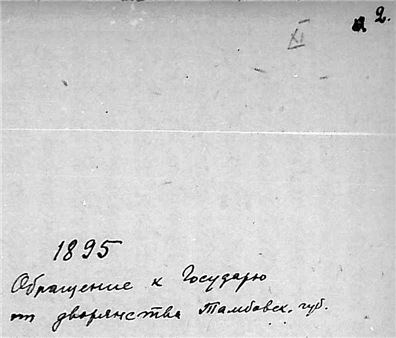 2.
XI
1895
Обращение к Государю
от дворянства Тамбовск. губ.